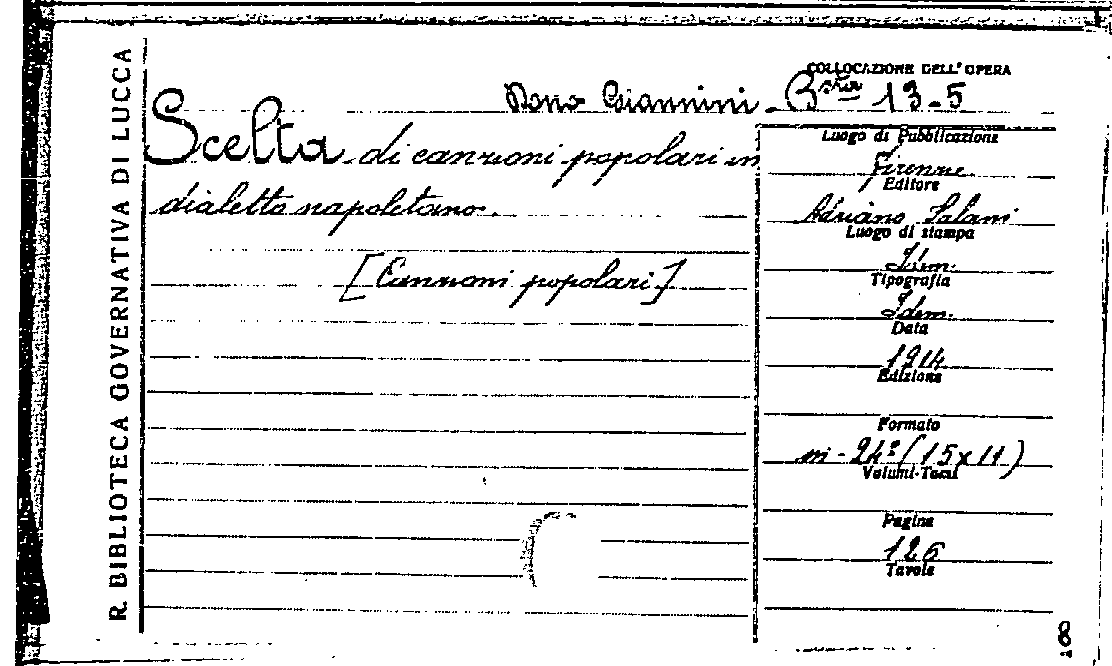 R. BIBLIOTECA GOVERNATIVA DI LUCCA
COLLOCAZIONE DELL'OPERA
Dono Giannini - Bsta 13-5
Scelta di canzoni popolari in
dialetto napoletano.
[Canzoni popolari]
Luogo di Pubblicazione
Firenze
Editore
Adriano Salani
Luogo di stampa
Idem.
Tipografia
Idem.
Data
1914
Edizione
Formato
in-24º (15x11)
Volumi-Tomi
Pagine
126
Tavole
8